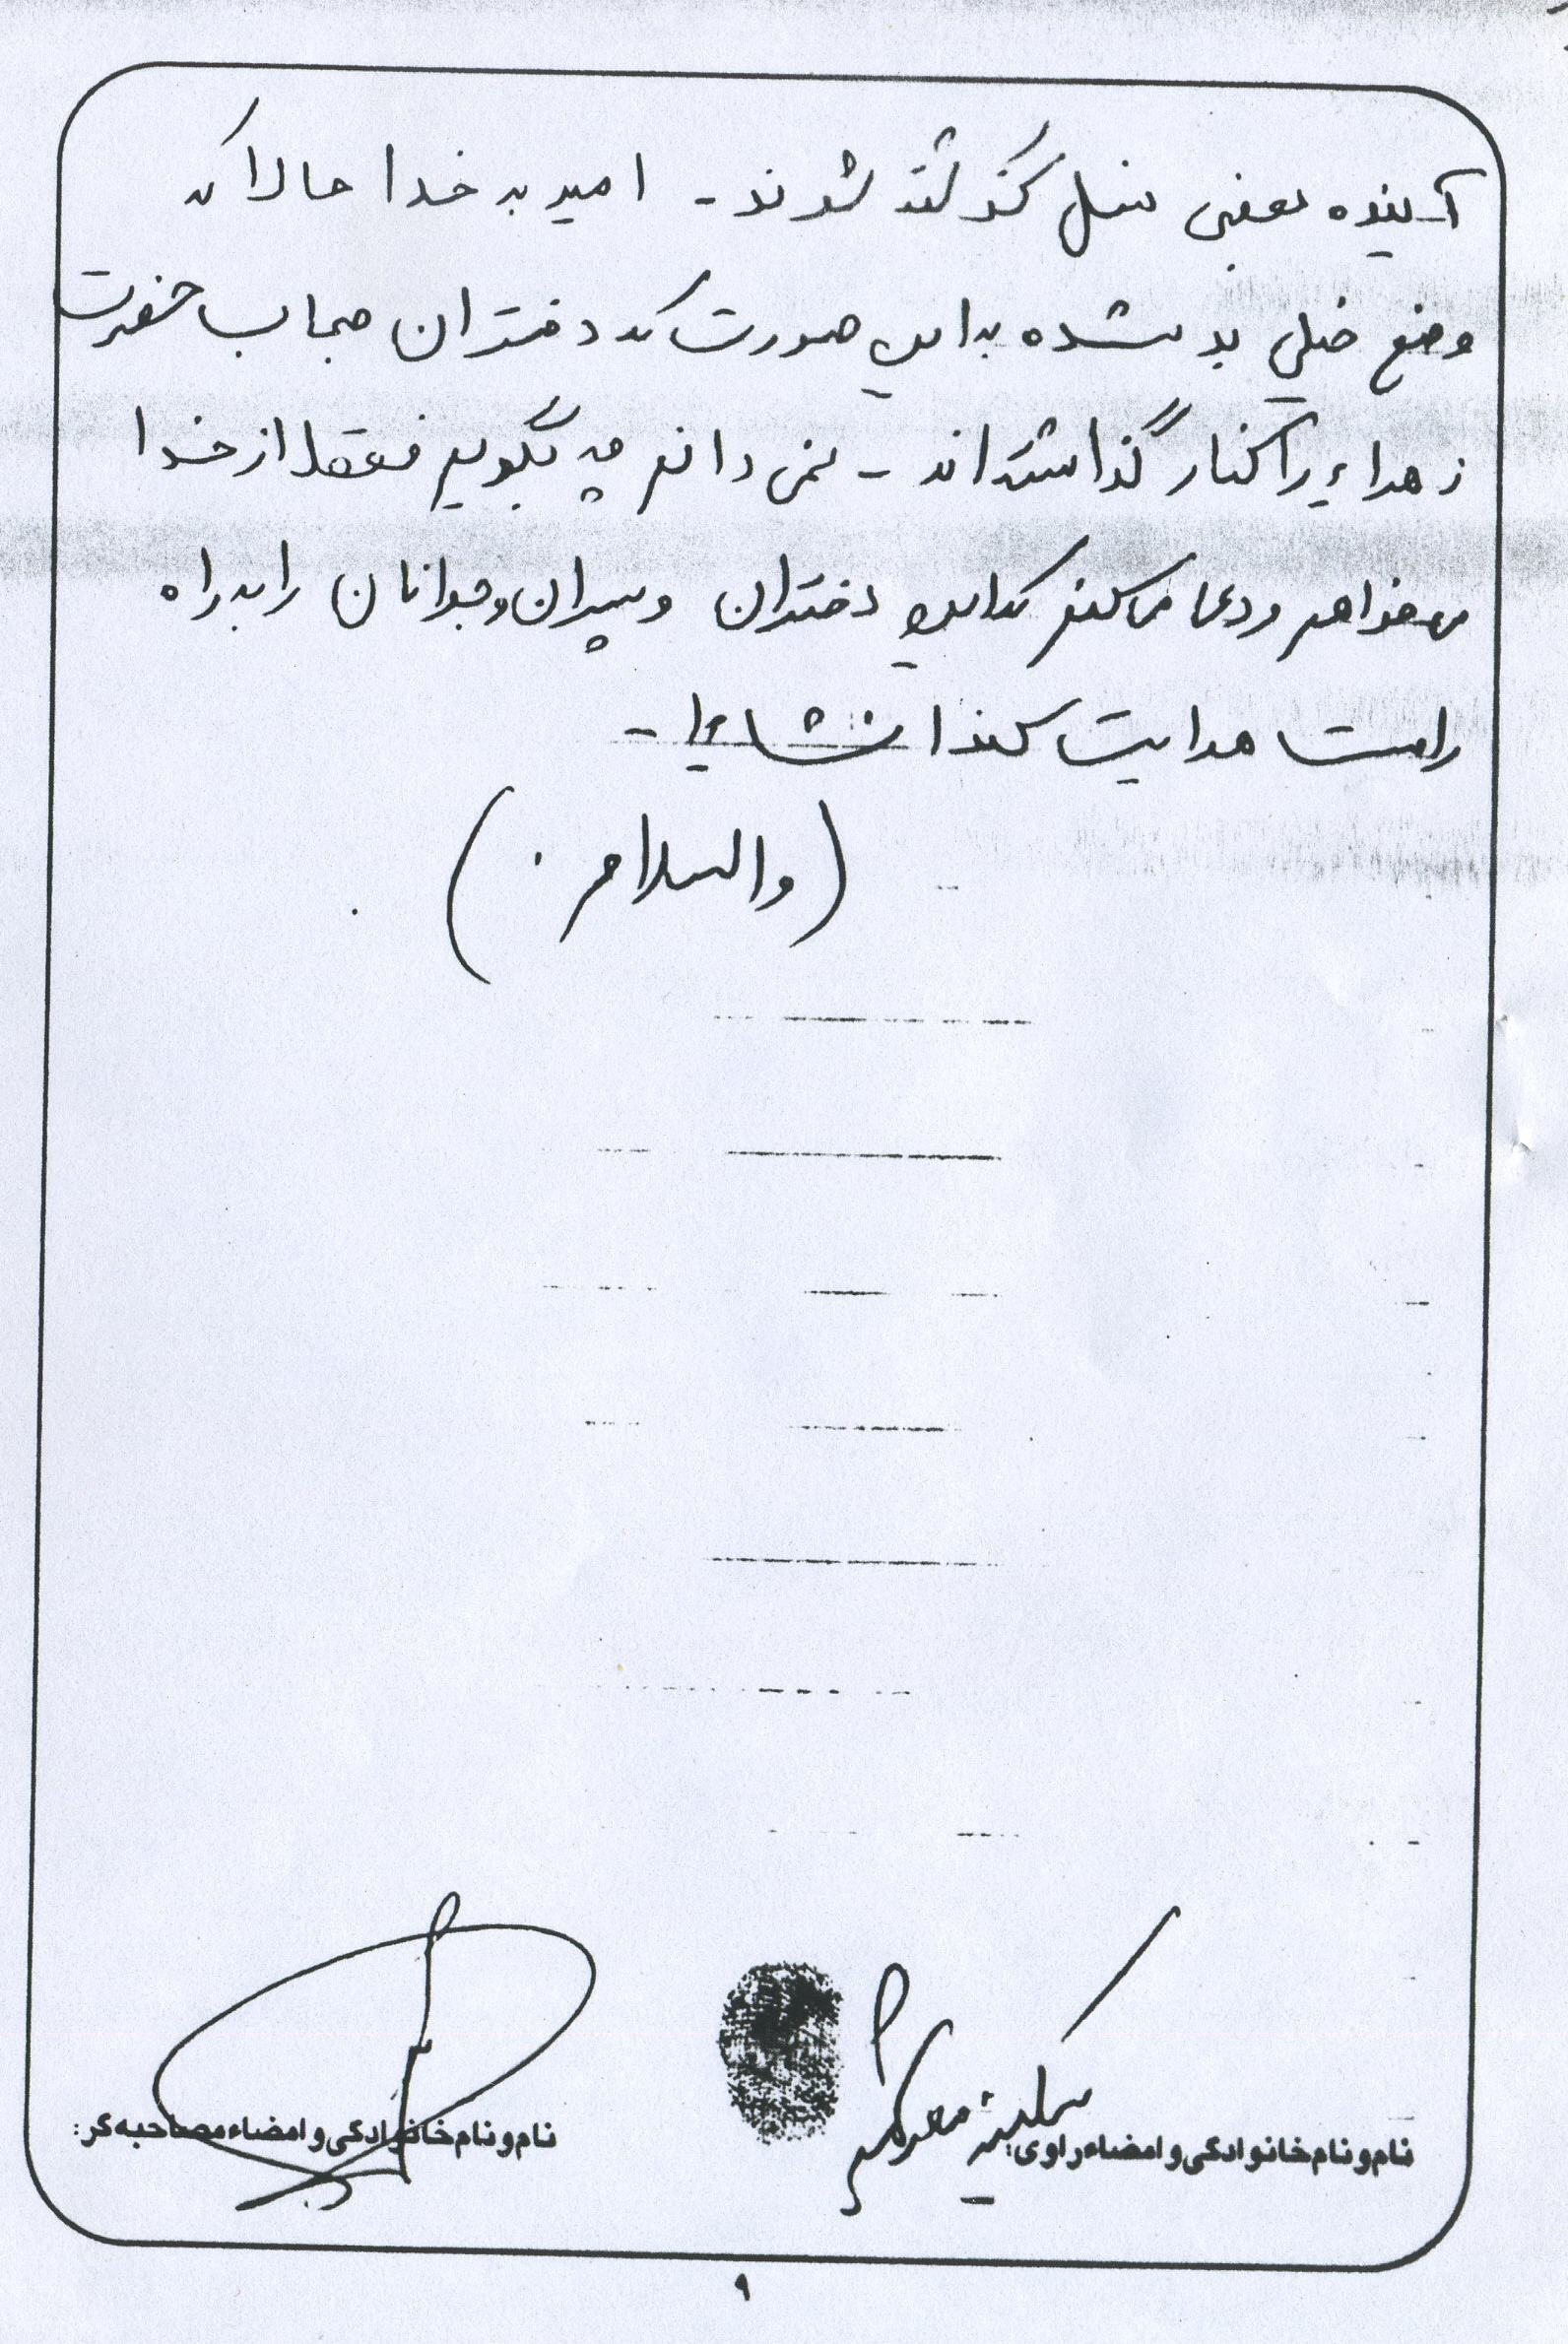 آینده بعضی نسل گذشته شوند - امید به خدا حالا که
وضع خیلی بد شده به این صورت که دختران حجاب حضرت
زهرا را کنار گذاشته اند - نمی دانم چه بگویم فقط از خدا
می خواهم و دعا می کنم که این دختران و پسران و جوانان را به راه
راست هدایت کند انشاء ا... -
(والسلام)
نام و نام خانوادگی و امضاء راوی: سکینه
نام و نام خانوادگی و امضاء مصاحبه گر:
۹